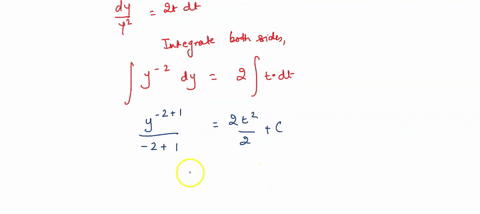 dy/y² = 2t dt
Integrate both sides,
∫ y⁻² dy = 2 ∫ t·dt
y⁻²⁺¹/-2+1 = 2t²/2 + C